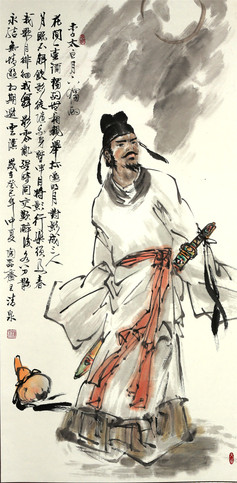 花間一壺酒獨酌無相親舉杯邀明月對影成三人
月既不解飲影徒隨我身暫伴月將影行樂須及春
我歌月徘徊我舞影零亂醒時同交歡醉後各分散
永結無情遊相期邈雲漢 癸巳年仲夏